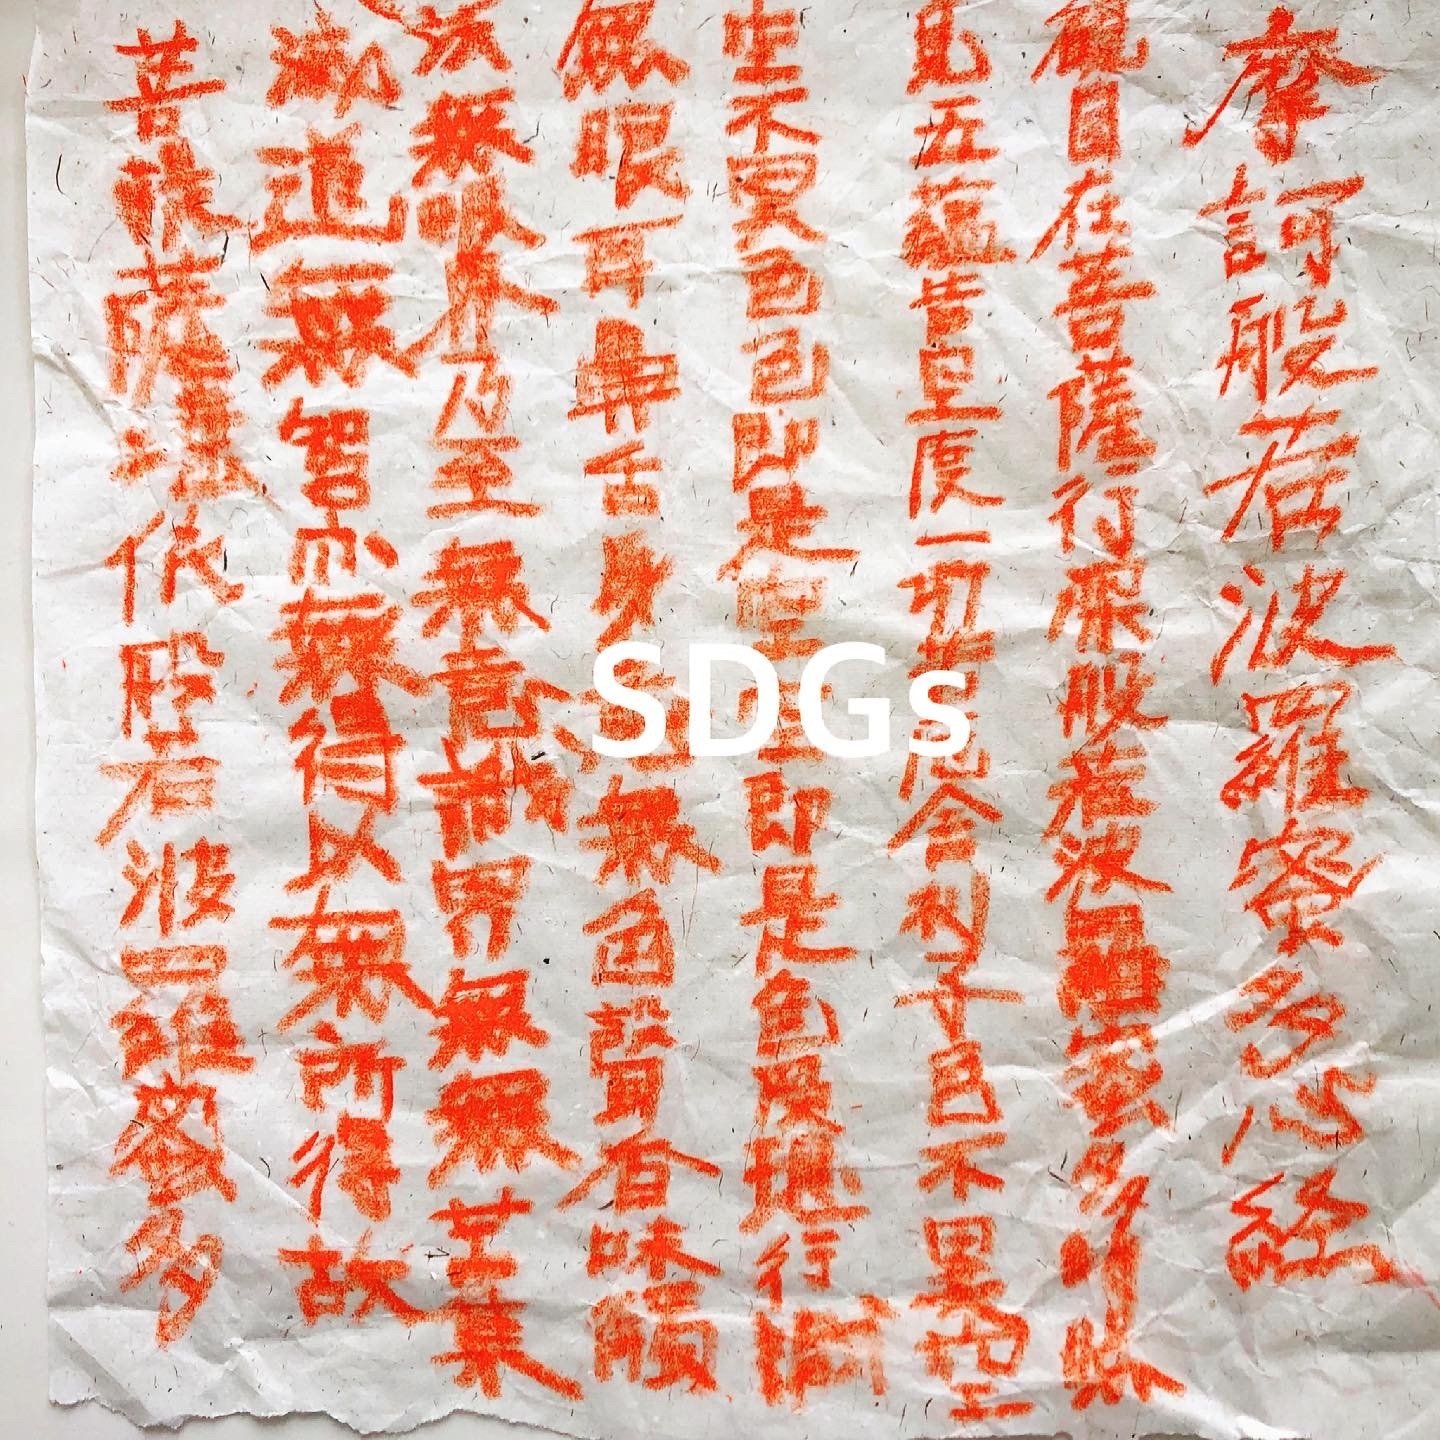 摩訶般若波羅蜜多心経
観自在菩薩行深般若波羅蜜多時照
見五蘊皆空度一切苦厄舎利子色不異空
空不異色色即是空空即是色受想行識
無眼耳鼻舌身意無色声香味触
法無眼界乃至無意識界無無苦集
滅道無智亦無得以無所得故
菩提薩埵依般若波羅蜜多
SDGs